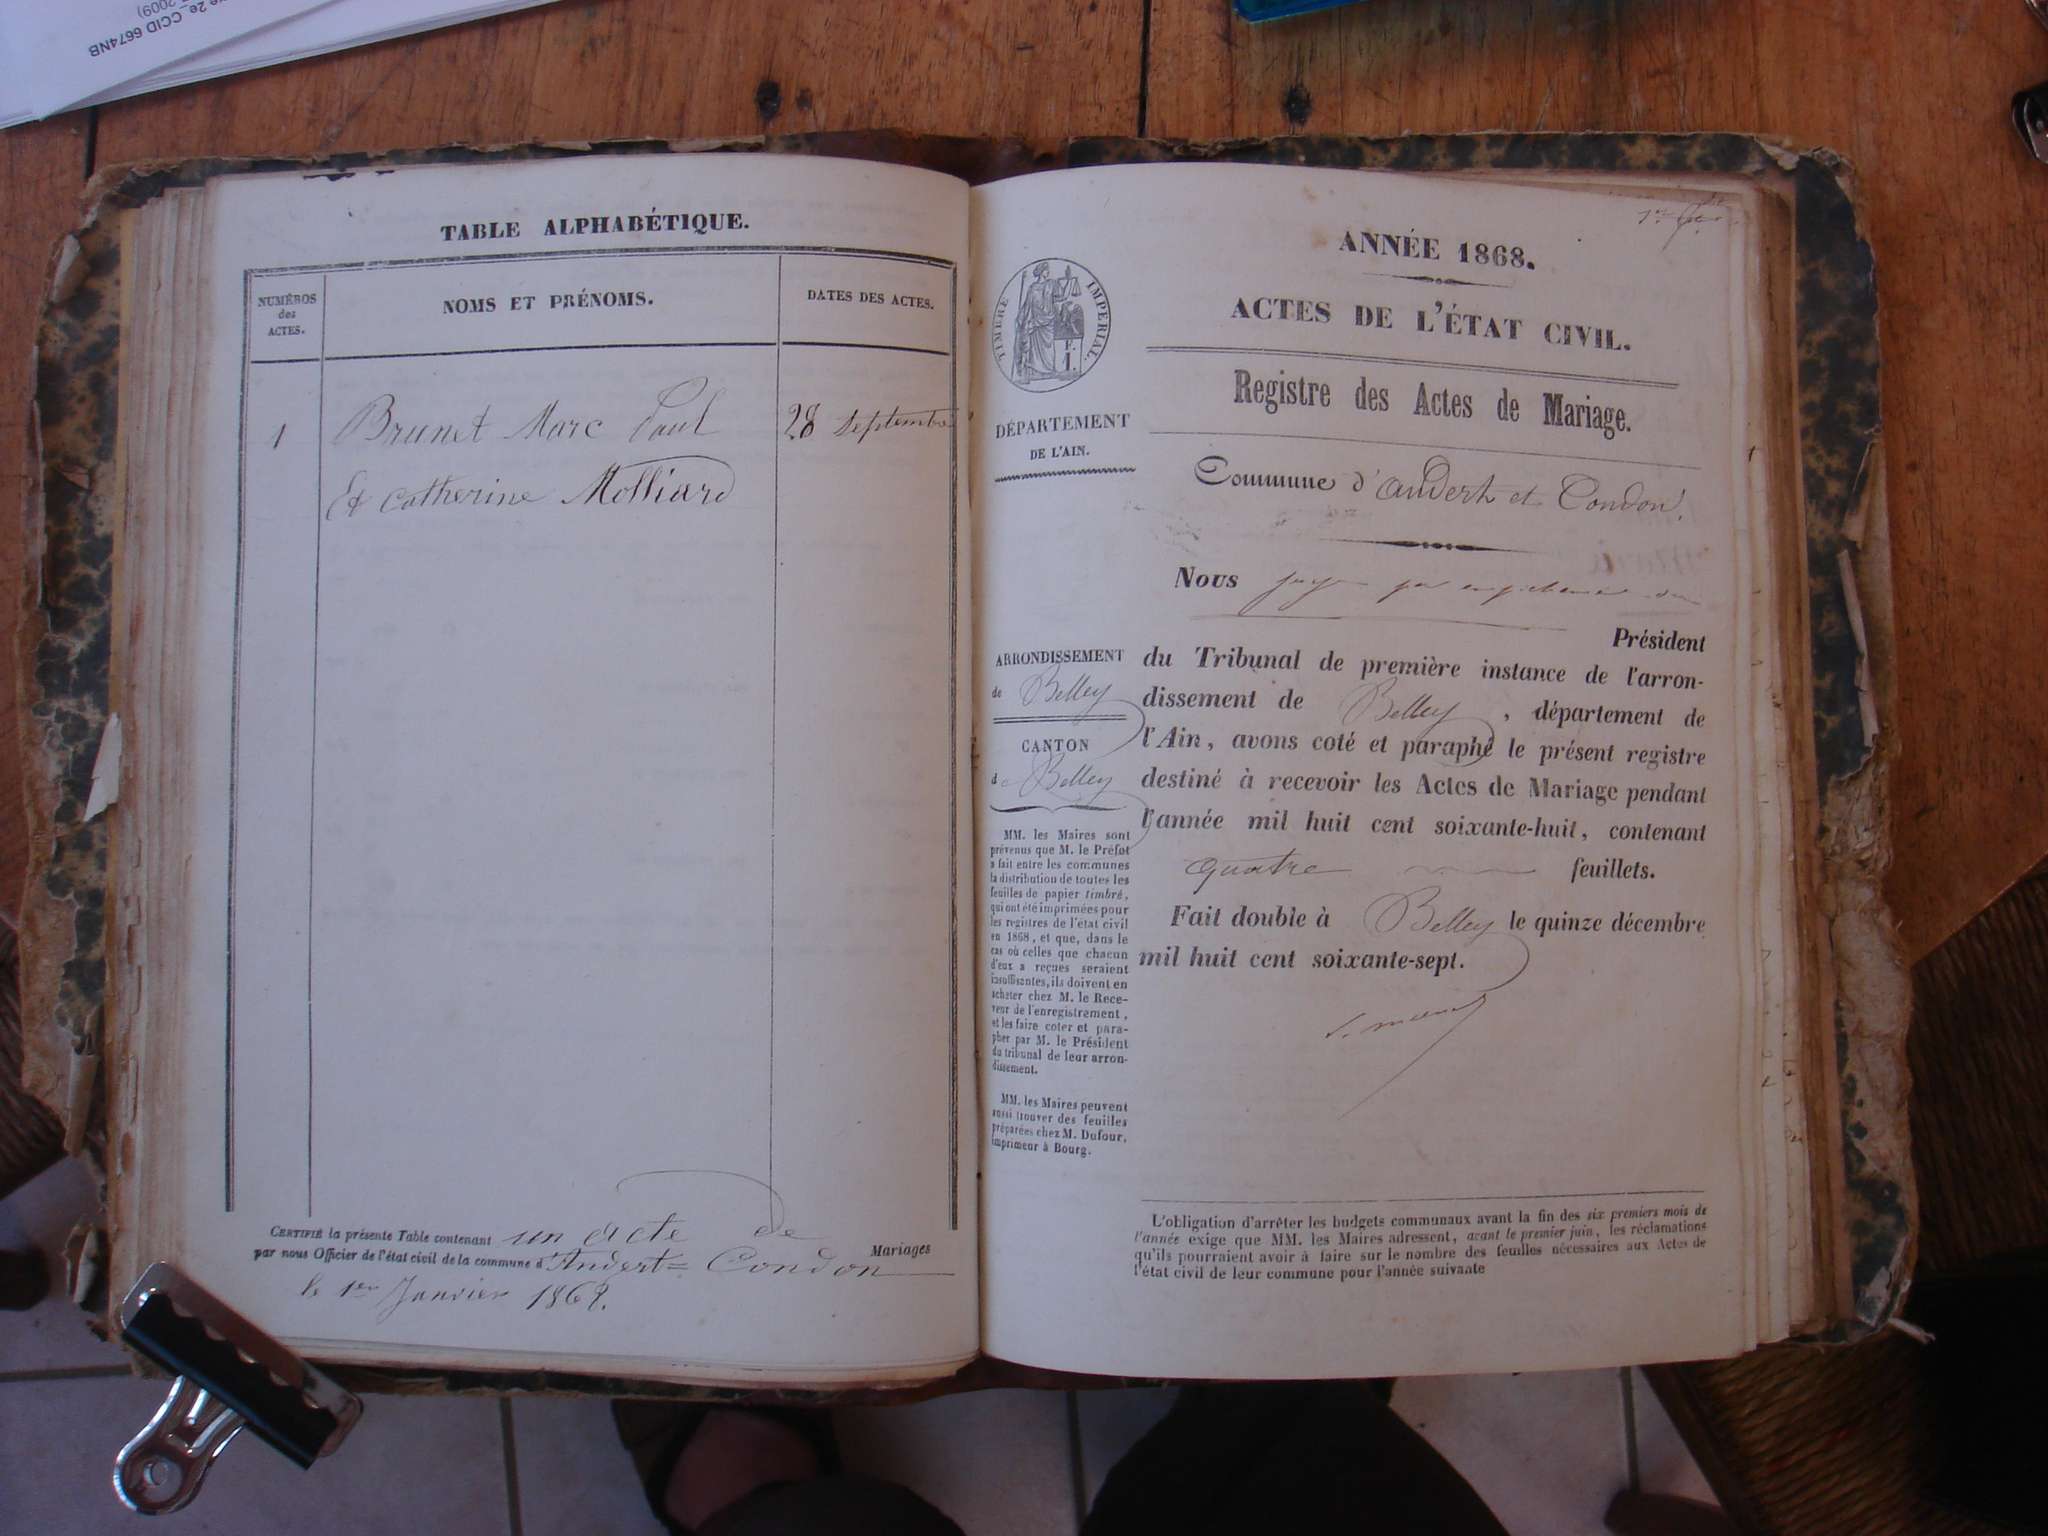 e 2e_CCID 6674NB
2009)
TABLE ALPHABÉTIQUE.
NUMÉROS
des
ACTES.
NOMS ET PRÉNOMS.
DATES DES ACTES.
1
Brunet Marc Paul
28 Septembre
Et Catherine Molliard
CERTIFIÉ la présente Table contenant un acte de
Mariages
par nous Officier de l'état civil de la commune d'Andert = Condon
le 1er Janvier 1868.
ANNÉE 1868.
ACTES DE L'ÉTAT CIVIL.
Registre des Actes de Mariage.
TIMBRE IMPÉRIAL.
F.
1.
DÉPARTEMENT
DE L'AIN.
Commune d'andert et Condon.
Nous juge par empêchement du
Président
du Tribunal de première instance de l'arron-
dissement de Belley, département de
l'Ain, avons coté et paraphé le présent registre
destiné à recevoir les Actes de Mariage pendant
l'année mil huit cent soixante-huit, contenant
quatre feuillets.
Fait double à Belley le quinze décembre
mil huit cent soixante-sept.
ARRONDISSEMENT
de Belley
CANTON
de Belley
MM. les Maires sont
prévenus que M. le Préfet
a fait entre les communes
la distribution de toutes les
feuilles de papier timbré,
qui ont été imprimées pour
les registres de l'état civil
en 1868, et que, dans le
cas où celles que chacun
d'eux a reçues seraient
insuffisantes, ils doivent en
acheter chez M. le Rece-
veur de l'enregistrement,
et les faire coter et para-
pher par M. le Président
du tribunal de leur arron-
dissement.
MM. les Maires peuvent
aussi trouver des feuilles
préparées chez M. Dufour,
imprimeur à Bourg.
L'obligation d'arrêter les budgets communaux avant la fin des six premiers mois de
l'année exige que MM. les Maires adressent, avant le premier juin, les réclamations
qu'ils pourraient avoir à faire sur le nombre des feuilles nécessaires aux Actes de
l'état civil de leur commune pour l'année suivante